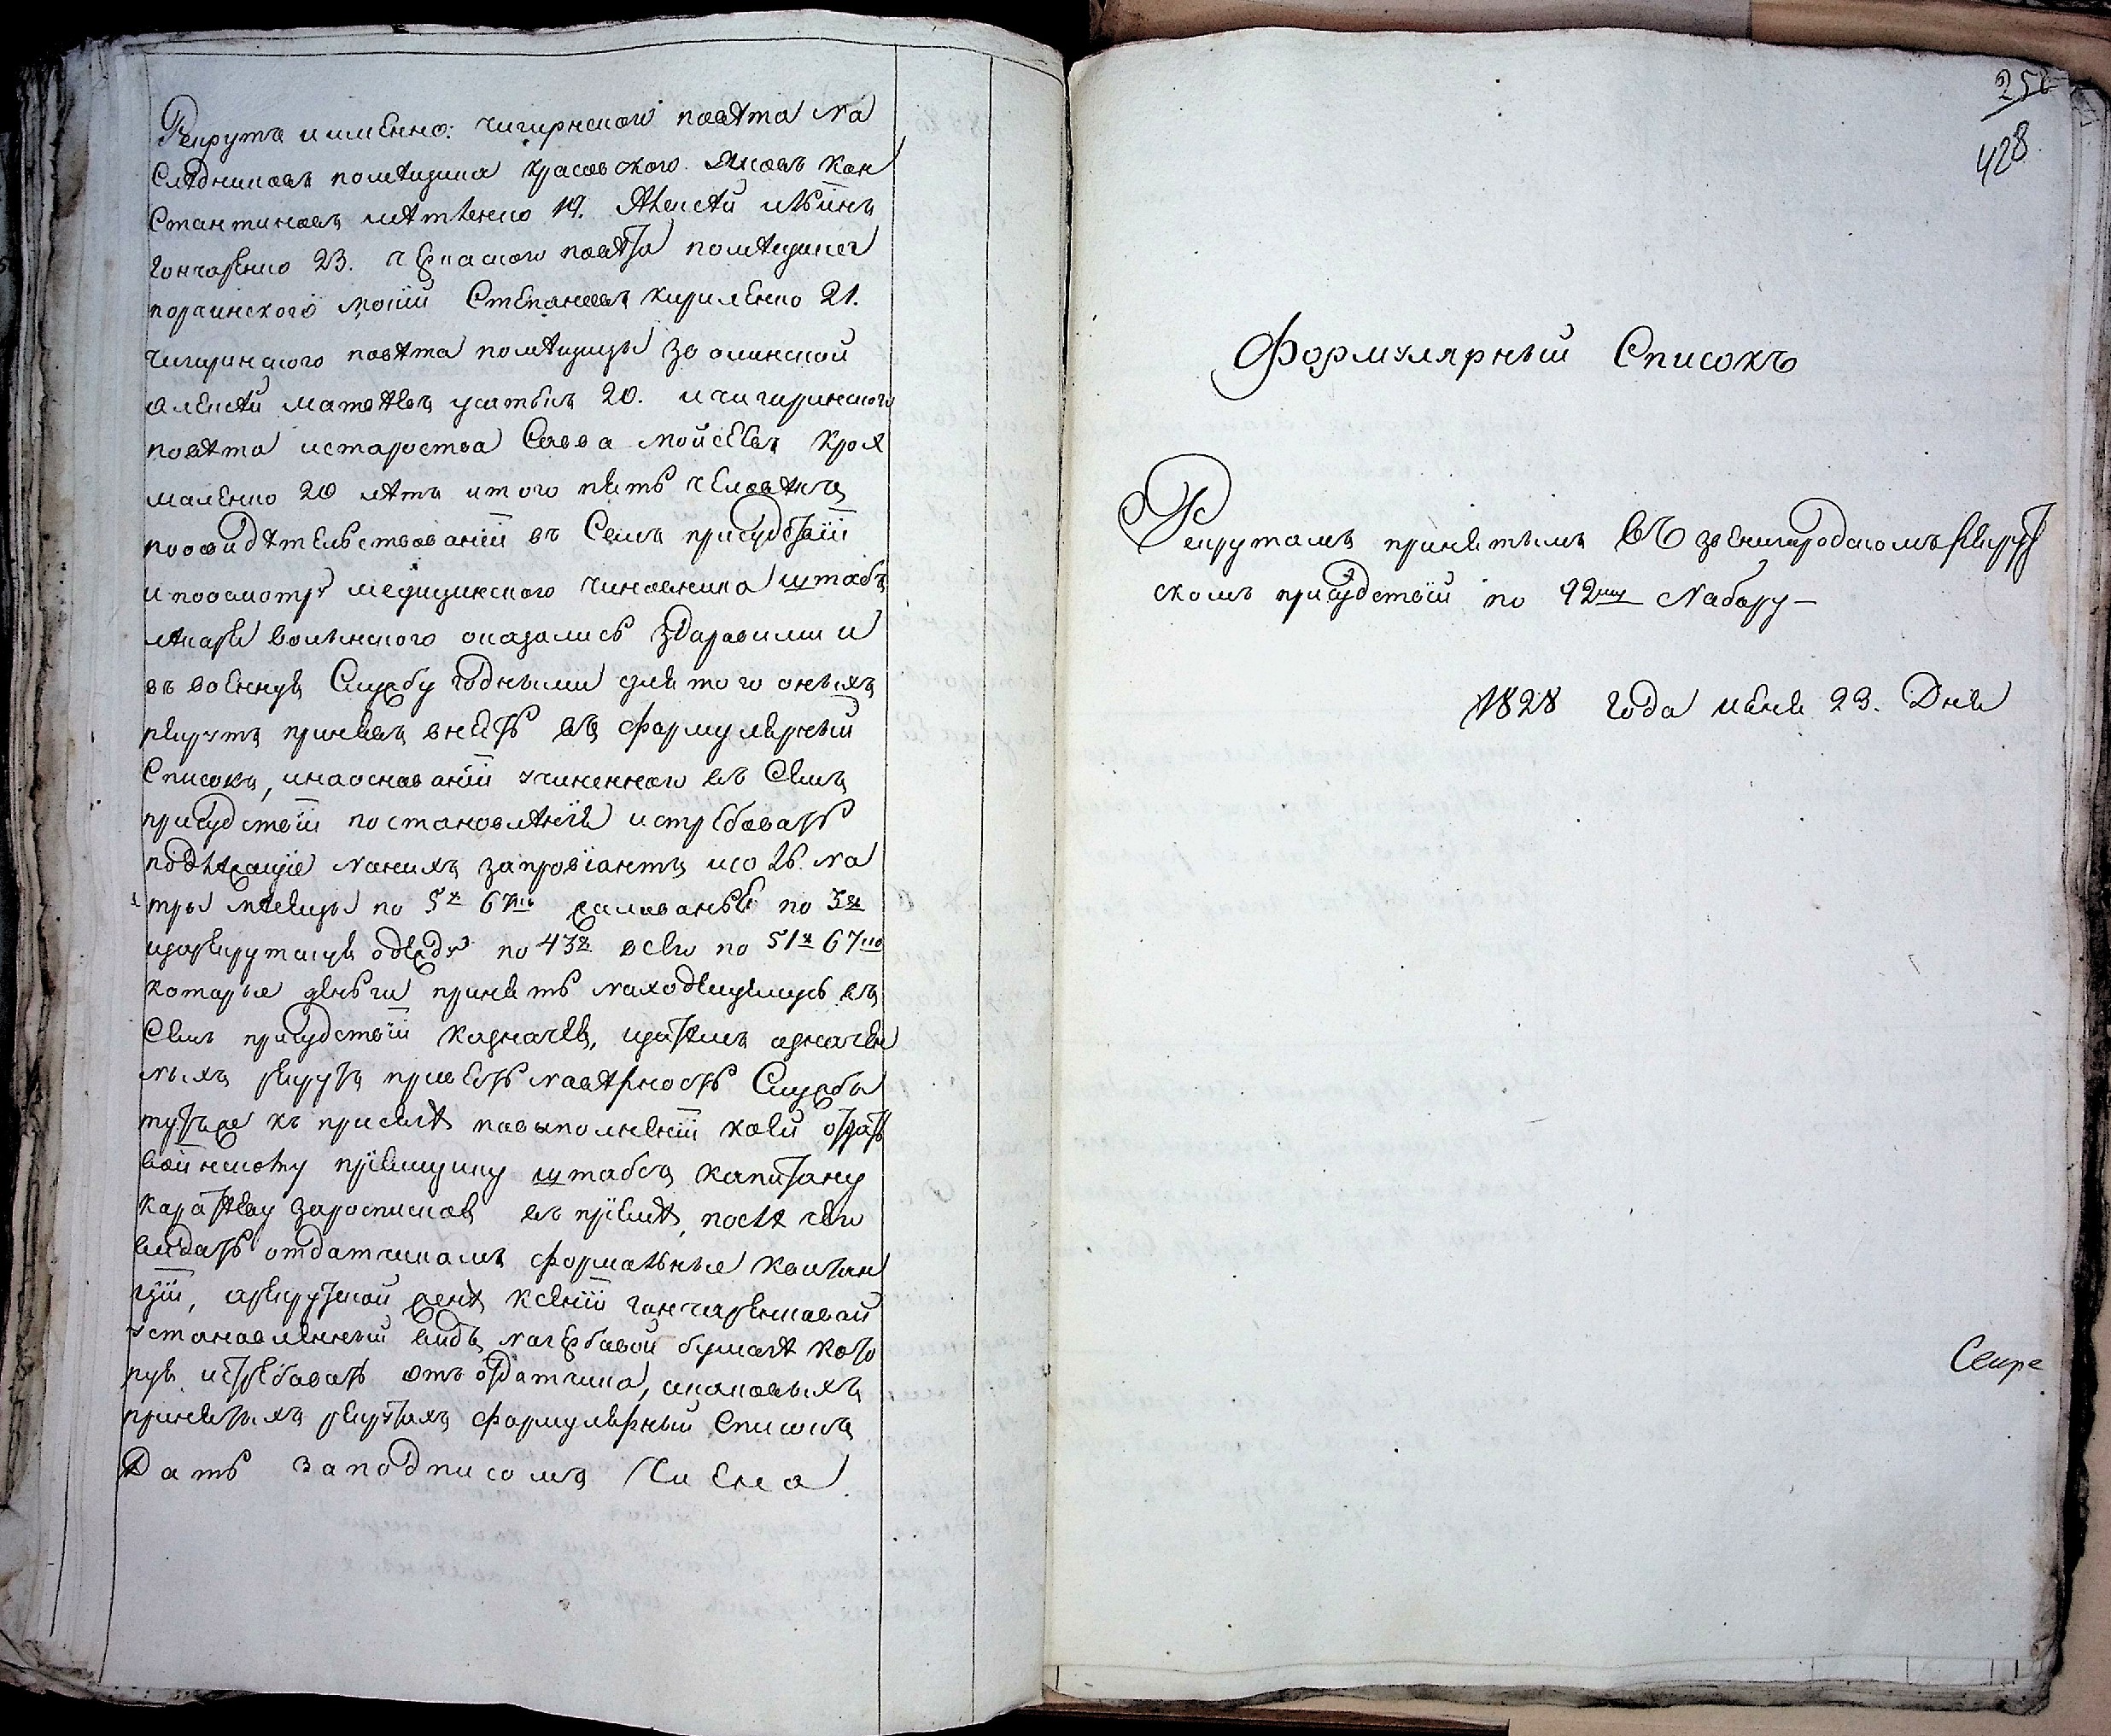 Рекрутъ имменно: чигирнского повѣта На
Слѣдниковъ помѣщика Красовского Яковъ Кон
Стантиновъ 19. Алексѣй
Гончаренко 23. Черкаского повѣта помѣщика
Степановъ Кириленко 21.
чигиринского повѣта помѣщицы
Алексѣй Матвѣевъ 20. и чигиринского
повѣта и староства Савва Мойсеевъ
маленко 20 лѣтъ итого пять человѣкъ
по освидѣтельствованіи въ Семъ присудствіи
и по осмотру медицинского чиновника штабъ
лѣкаря Волынского оказались здаровими и
въ военную Службу годными для того оныхъ
рекрутъ принявъ внесть въ формулярный
Списокъ, инаосновании учиненного въ Семъ
присудствіи постановлѣнія истребовать
подлѣжащие на нихъ запровіантъ на
три мѣсяцы по 5 67 жалованья по 3
и за рекрутскую одежду по 43 всего по 51 67
которые деньги принять находящемусь въ
Семъ присудствіи Казначею, потомъ
ныхъ рекрутъ привесть на вѣрность Службы
тутъже къ присягѣ по выполненіи коей отдать
воинскому пріемщику штабсъ капитану
Каратѣеву за роспискою въ пріемѣ, послѣ чего
видать отдатчикамъ формальные Квитан
ціи, а рекрутской женѣ Ксеніи гончаренковой
установленный видъ на гербовой бумагѣ кото
рую истребовать отъ отдатчика, о таковыхъ
принятыхъ рекрутахъ формулярный Списокъ
Дать за подписомъ Члена.
256
428
Формулярный Списокъ
Рекрутамъ принятымъ въ звенигородскомъ рекрут
скомъ присудствіи по 92му Набору —
1828 года июня 23. Дня
Секре